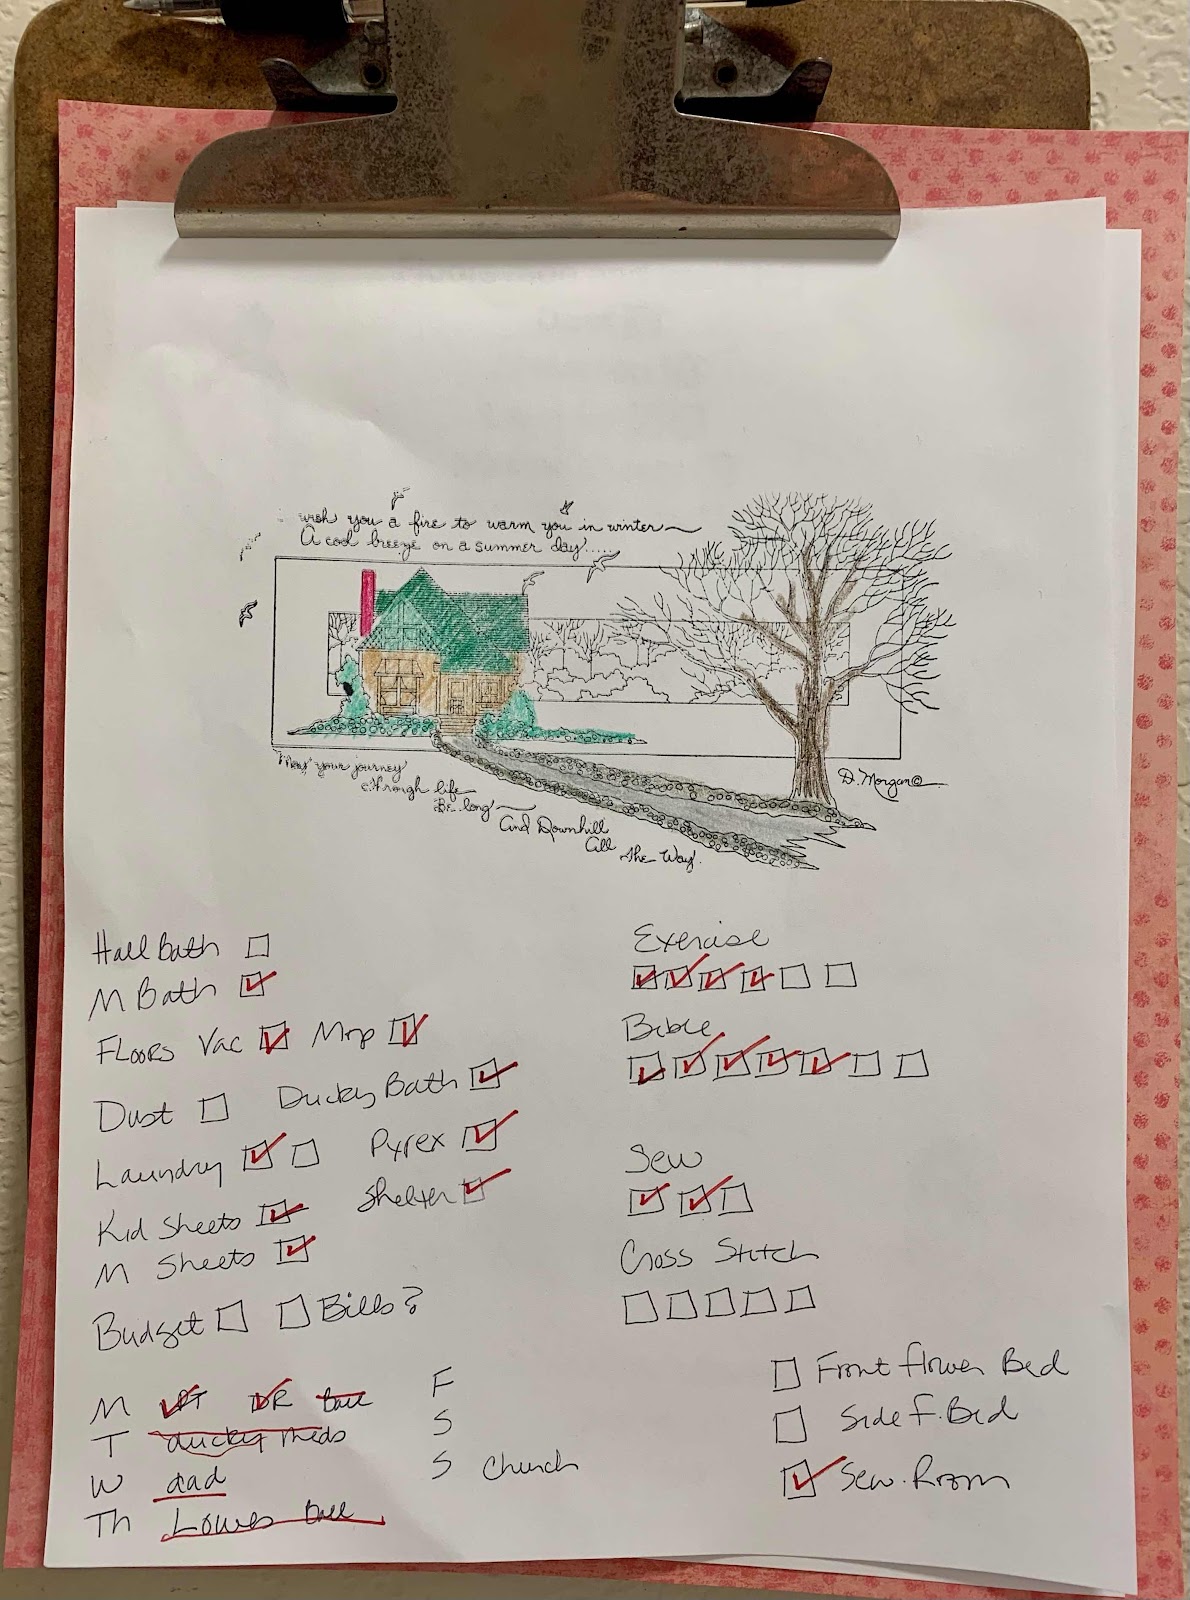 wish you a fire to warm you in winter
A cool breeze on a summer day.....
May your journey
through life
Be long
And Downhill
All
the Way!
D. Morgan©
Hall Bath
M Bath
FLOORS Vac Mop
Dust Ducky Bath
Laundry Pyrex
Kid Sheets Shelter
M Sheets
Budget Bills?
Exercise
Bible
Sew
Cross Stitch
Front flower Bed
Side F. Bed
Sew. Room
M PT DR
T ducky meds
W dad
Th Lowes
F
S
S Church